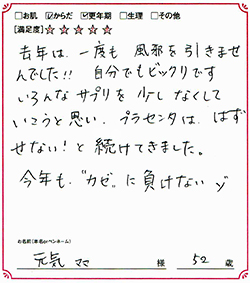 □お肌 ☑からだ ☑更年期 □生理 □その他
[満足度]☆☆☆☆☆
去年は、一度も 風邪を引きませ
んでした!! 自分でもビックリです
いろんなサプリを 少しなくして
いこうと思い、プラセンタは、はず
せない!と続けてきました。
今年も、"カゼ"に負けない
お名前(本名orペンネーム)
元気ママ 様 52 歳